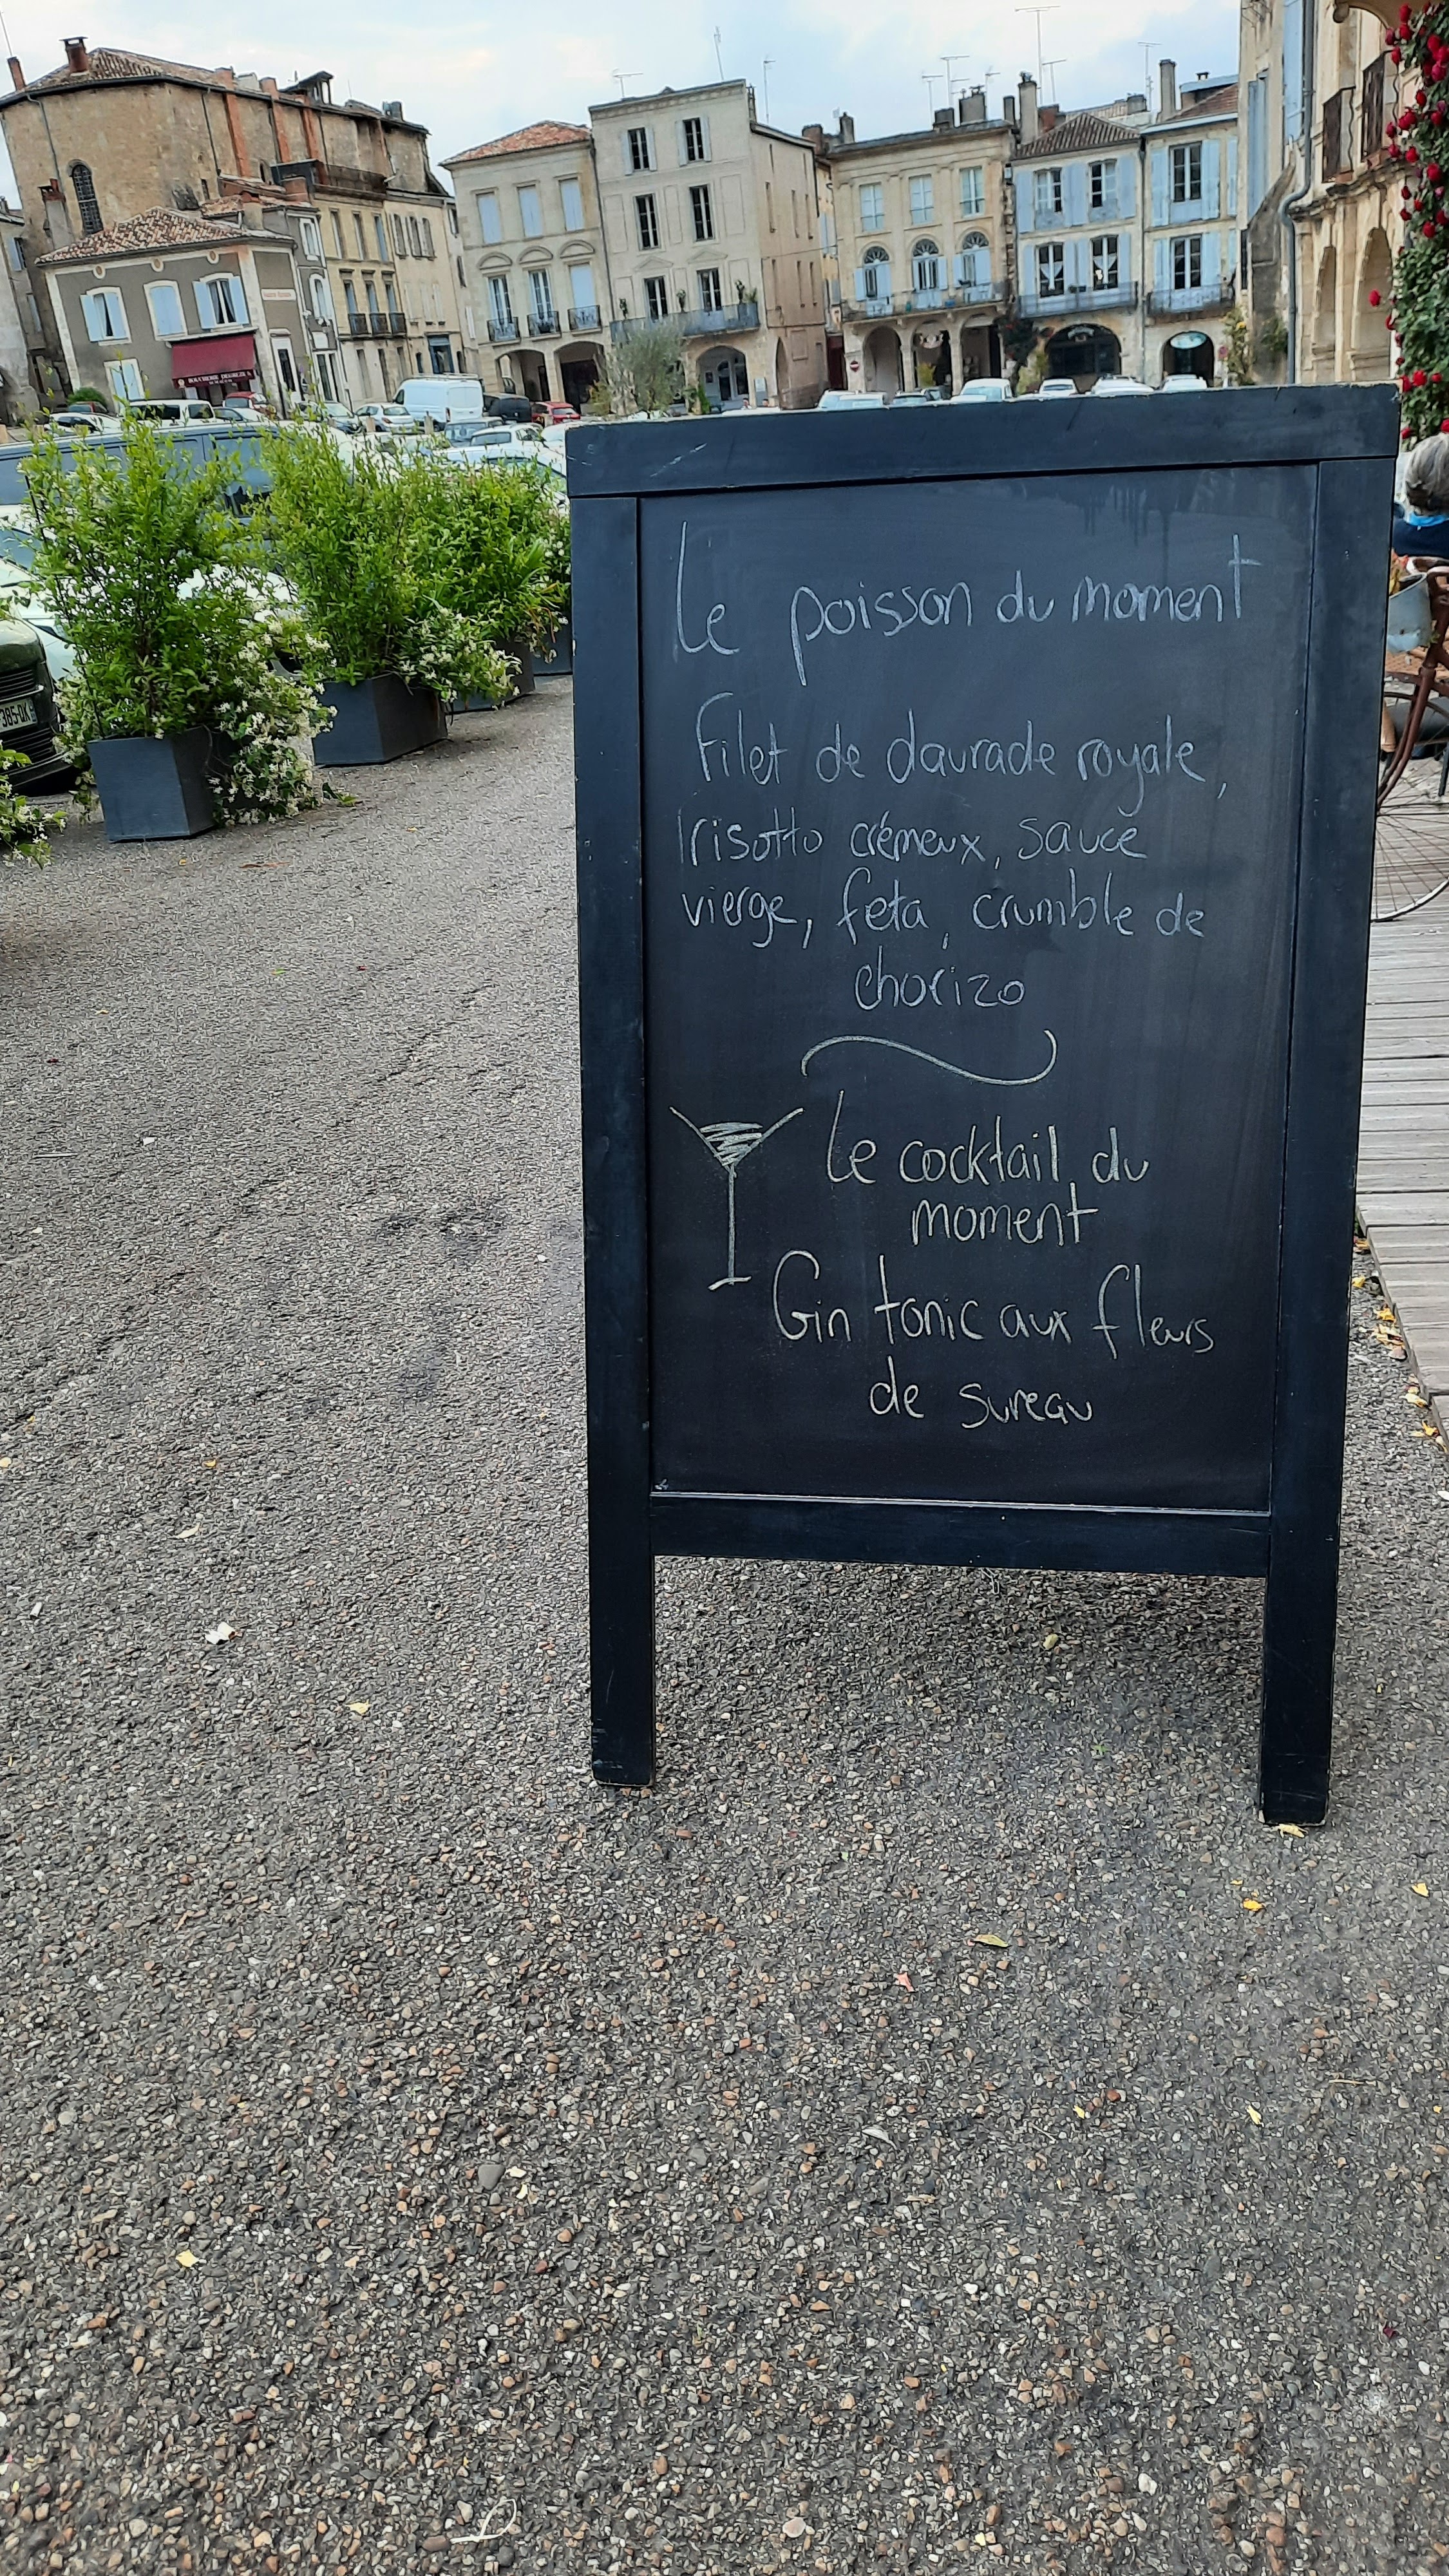 Le poisson du moment
Filet de daurade royale,
risotto crémeux, sauce
vierge, feta, crumble de
chorizo
Le cocktail du
moment
Gin tonic aux fleurs
de sureau
385-QK